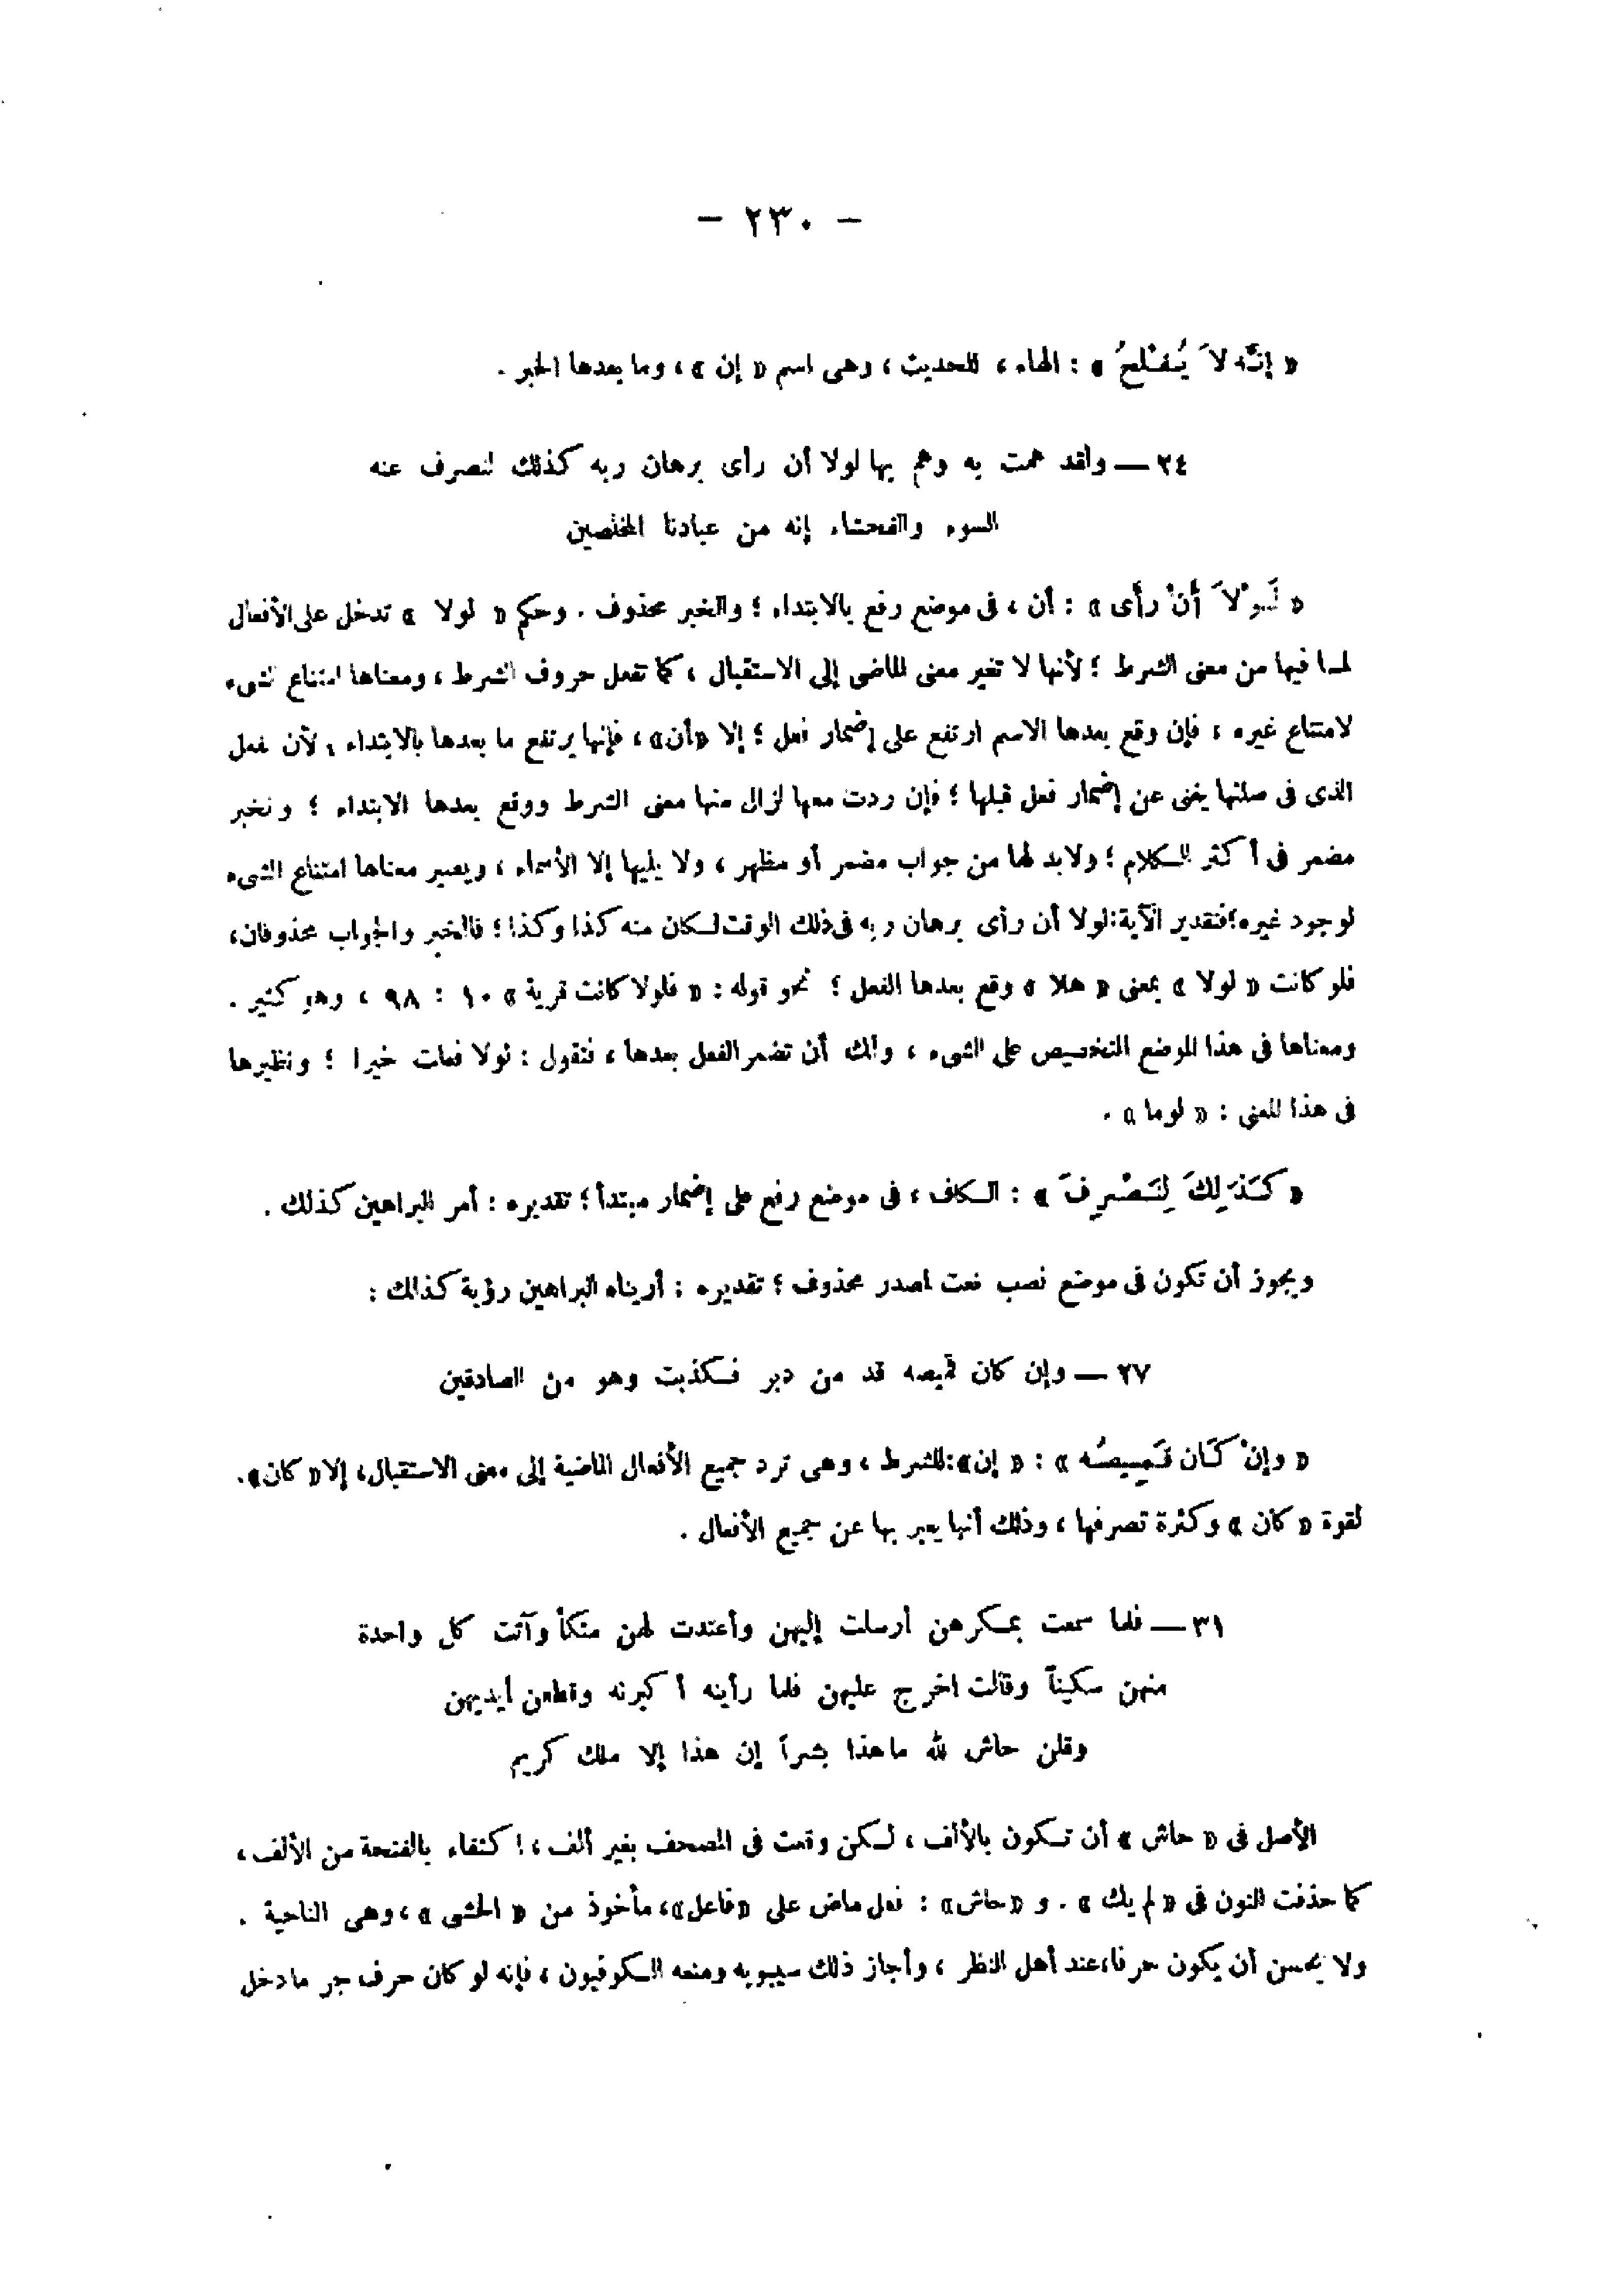 – ٢٣٠ –
« إنَّه لاَ يُفْلحُ » : الهاء ، للحديث ، وهى اسم « إن » ، وما بعدها الخبر .
٢٤ — ولقد همت به وهم بها لولا أن رأى برهان ربه كذلك لنصرف عنه
السوء والفحشاء إنه من عبادنا المخلصين
« لَوْلاَ أَنْ رأى » : أن ، فى موضع رفع بالابتداء ؛ والخبر محذوف . وحكم « لولا » تدخل على الأفعال
لما فيها من معنى الشرط ؛ لأنها لا تغير معنى الماضى إلى الاستقبال ، كما تفعل حروف الشرط ، ومعناها امتناع الشىء
لامتناع غيره ، فإن وقع بعدها الاسم ارتفع على إضمار فعل ؛ إلا «أن» ، فإنها يرتفع ما بعدها بالابتداء ، لأن لفعل
الذى فى صلتها يغنى عن إضمار فعل قبلها ؛ فإن ردت معها لزال منها معنى الشرط ووقع بعدها الابتداء ؛ ونخبر
مضمر فى أكثر الكلام ؛ ولابد لها من جواب مضمر أو مظهر ، ولا يليها إلا الأسماء ، ويصير معناها امتناع الشىء
لوجود غيره؛فتقدير الآية:لولا أن رأى برهان ربه فى ذلك الوقت لكان منه كذا وكذا ؛ فالخبر والجواب محذوفان،
فلو كانت « لولا » بمعنى « هلا » وقع بعدها الفعل ؛ نحو قوله : « فلولا كانت قرية » ١٠ : ٩٨ ، وهو كثير .
ومعناها فى هذا الموضع التخصيص على الشىء ، ولك أن تضمر الفعل بعدها ، فتقول : لولا فعلت خيرا ؛ ونظيرها
فى هذا المعنى : « لوما » .
« كَذَلِكَ لِنَصْرِفَ » : الكاف ، فى موضع رفع على إضمار مبتدأ ؛ تقديره : أمر البراهين كذلك .
ويجوز أن تكون فى موضع نصب نعت لمصدر محذوف ؛ تقديره : أريناه البراهين رؤية كذلك :
٢٧ — وإن كان قميصه قد من دبر فكذبت وهو من الصادقين
« وإنْ كَان قَمِيصُه » : « إن»:للشرط ، وهى ترد جميع الأفعال الماضية إلى معنى الاستقبال، إلا « كان».
لقوة « كان » وكثرة تصرفها ، وذلك أنها يعبر بها عن جميع الأفعال .
٣١ — فلما سمعت بمكرهن أرسلت إليهن وأعتدت لهن متكأ وآتت كل واحدة
منهن سكيناً وقالت اخرج عليهن فلما رأينه أكبرنه وقطعن أيديهن
وقلن حاش لله ماهذا بشراً إن هذا إلا ملك كريم
الأصل فى « حاش » أن تكون بالألف ، لكن وقعت فى المصحف بغير ألف ، اكتفاء بالفتحة من الألف ،
كما حذفت النون فى « لم يك » . و «حاش» : فعل ماض على «فاعل»، مأخوذ من « الحشى » ، وهى الناحية .
ولا يحسن أن يكون حرفا،عند أهل النظر ، وأجاز ذلك سيبويه ومنعه الكوفيون ، فإنه لو كان حرف جر مادخل